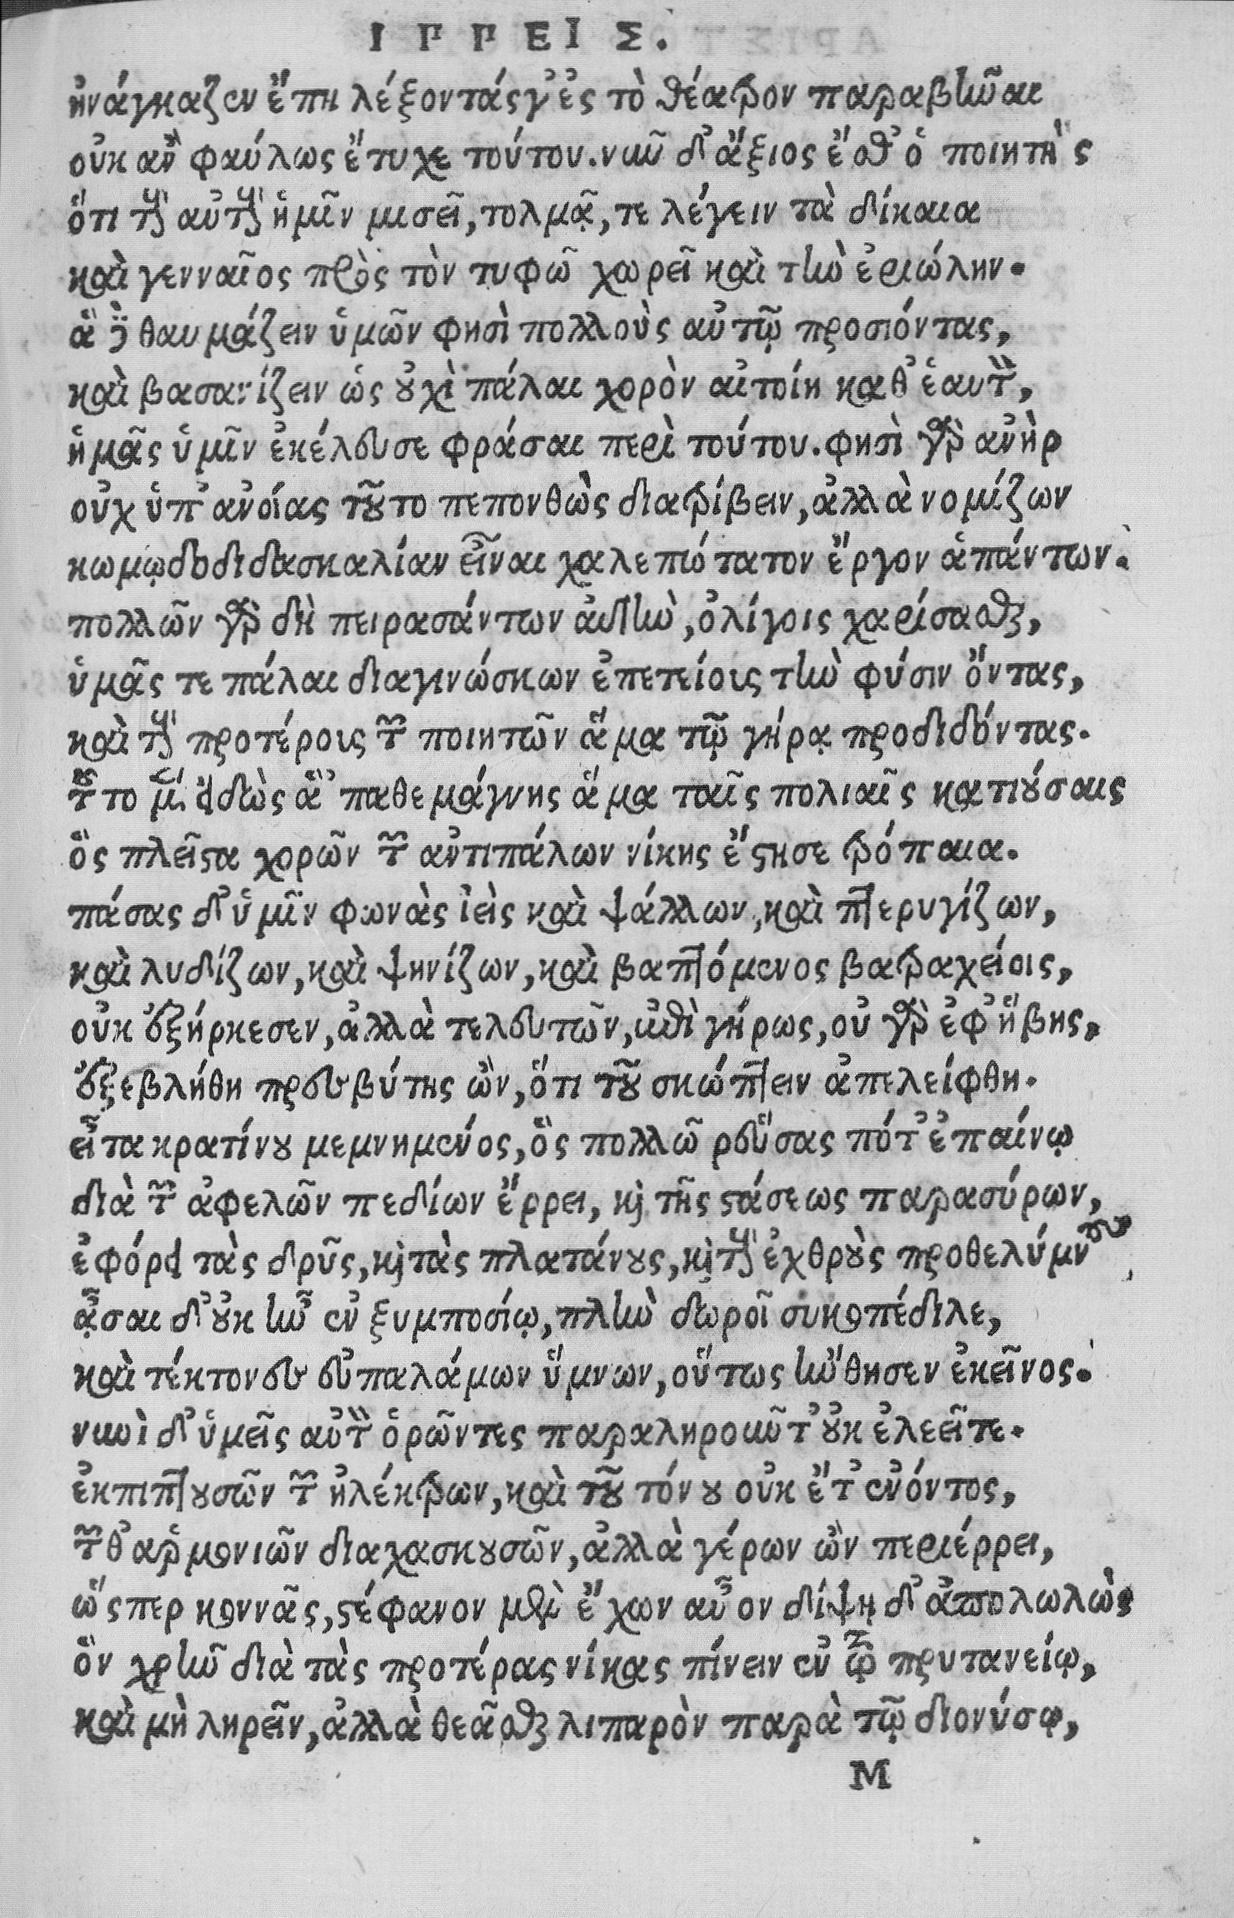 ΙΠΠΕΙΣ.
ἠνάγκαζεν ἔπη λέξοντάς γ' ἐς τὸ θέατρον παραβῆναι
οὐκ ἂν φαύλως ἔτυχε τούτου. νῦν δ' ἄξιος ἔσθ' ὁ ποιητὴς
ὅτι τοὺς αὐτοὺς ἡμῖν μισεῖ, τολμᾷ, τε λέγειν τὰ δίκαια
καὶ γενναῖος πρὸς τὸν τυφῶ χωρεῖ καὶ τὴν ἐριώλην.
ἃ δὲ θαυμάζειν ὑμῶν φησὶ πολλοὺς αὐτῷ προσιόντας,
καὶ βασανίζειν ὡς οὐχὶ πάλαι χορὸν αἰτοίη καθ' ἑαυτὸν,
ἡμᾶς ὑμῖν ἐκέλευσε φράσαι περὶ τούτου. φησὶ γὰρ ἀνὴρ
οὐχ ὑπ' ἀνοίας τοῦτο πεπονθὼς διατρίβειν, ἀλλὰ νομίζων
κωμῳδοδιδασκαλίαν εἶναι χαλεπώτατον ἔργον ἁπάντων.
πολλῶν γὰρ δὴ πειρασάντων αὐτὴν, ὀλίγοις χαρίσασθαι,
ὑμᾶς τε πάλαι διαγινώσκων ἐπετείοις τὴν φύσιν ὄντας,
καὶ τοὺς προτέροις τῶν ποιητῶν ἅμα τῷ γήρᾳ προδιδόντας.
τοῦτο μὲν εἰδὼς ἃ 'παθε μάγνης ἅμα ταῖς πολιαῖς κατιούσαις
ὃς πλεῖστα χορῶν τῶν ἀντιπάλων νίκης ἔστησε τρόπαια.
πάσας δ' ὑμῖν φωνὰς ἱεὶς καὶ ψάλλων, καὶ πτερυγίζων,
καὶ λυδίζων, καὶ ψηνίζων, καὶ βαπτόμενος βατραχείοις,
οὐκ ἐξήρκεσεν, ἀλλὰ τελευτῶν, ἐπὶ γήρως, οὐ γὰρ ἐφ' ἥβης,
ἐξεβλήθη πρεσβύτης ὢν, ὅτι τοῦ σκώπτειν ἀπελείφθη.
εἶτα κρατίνου μεμνημένος, ὃς πολλῶ ῥεύσας πότ' ἐπαίνῳ
διὰ τῶν ἀφελῶν πεδίων ἔρρει, καὶ τῆς στάσεως παρασύρων,
ἐφόρει τὰς δρῦς, καὶ τὰς πλατάνους, καὶ τοὺς ἐχθροὺς προθελύμνους
ᾆσαι δ' οὐκ ἦν ἐν ξυμποσίῳ, πλὴν δωροῖ συκοπέδιλε,
καὶ τέκτονες εὐπαλάμων ὕμνων, οὕτως ἤνθησεν ἐκεῖνος.
νυνὶ δ' ὑμεῖς αὐτὸν ὁρῶντες παραληροῦντ' οὐκ ἐλεεῖτε.
ἐκπιπτουσῶν τῶν ἠλέκτρων, καὶ τοῦ τόνου οὐκ ἔτ' ἐνόντος,
τῶν θ' ἁρμονιῶν διαχασκουσῶν, ἀλλὰ γέρων ὢν περιέρρει,
ὥςπερ κοννᾶς, στέφανον μὲν ἔχων αὖον δίψῃ δ' ἀπολωλὼς
ὃν χρῆν διὰ τὰς προτέρας νίκας πίνειν ἐν τῷ πρυτανείῳ,
καὶ μὴ ληρεῖν, ἀλλὰ θεᾶσθαι λιπαρὸν παρὰ τῷ διονύσῳ,
Μ